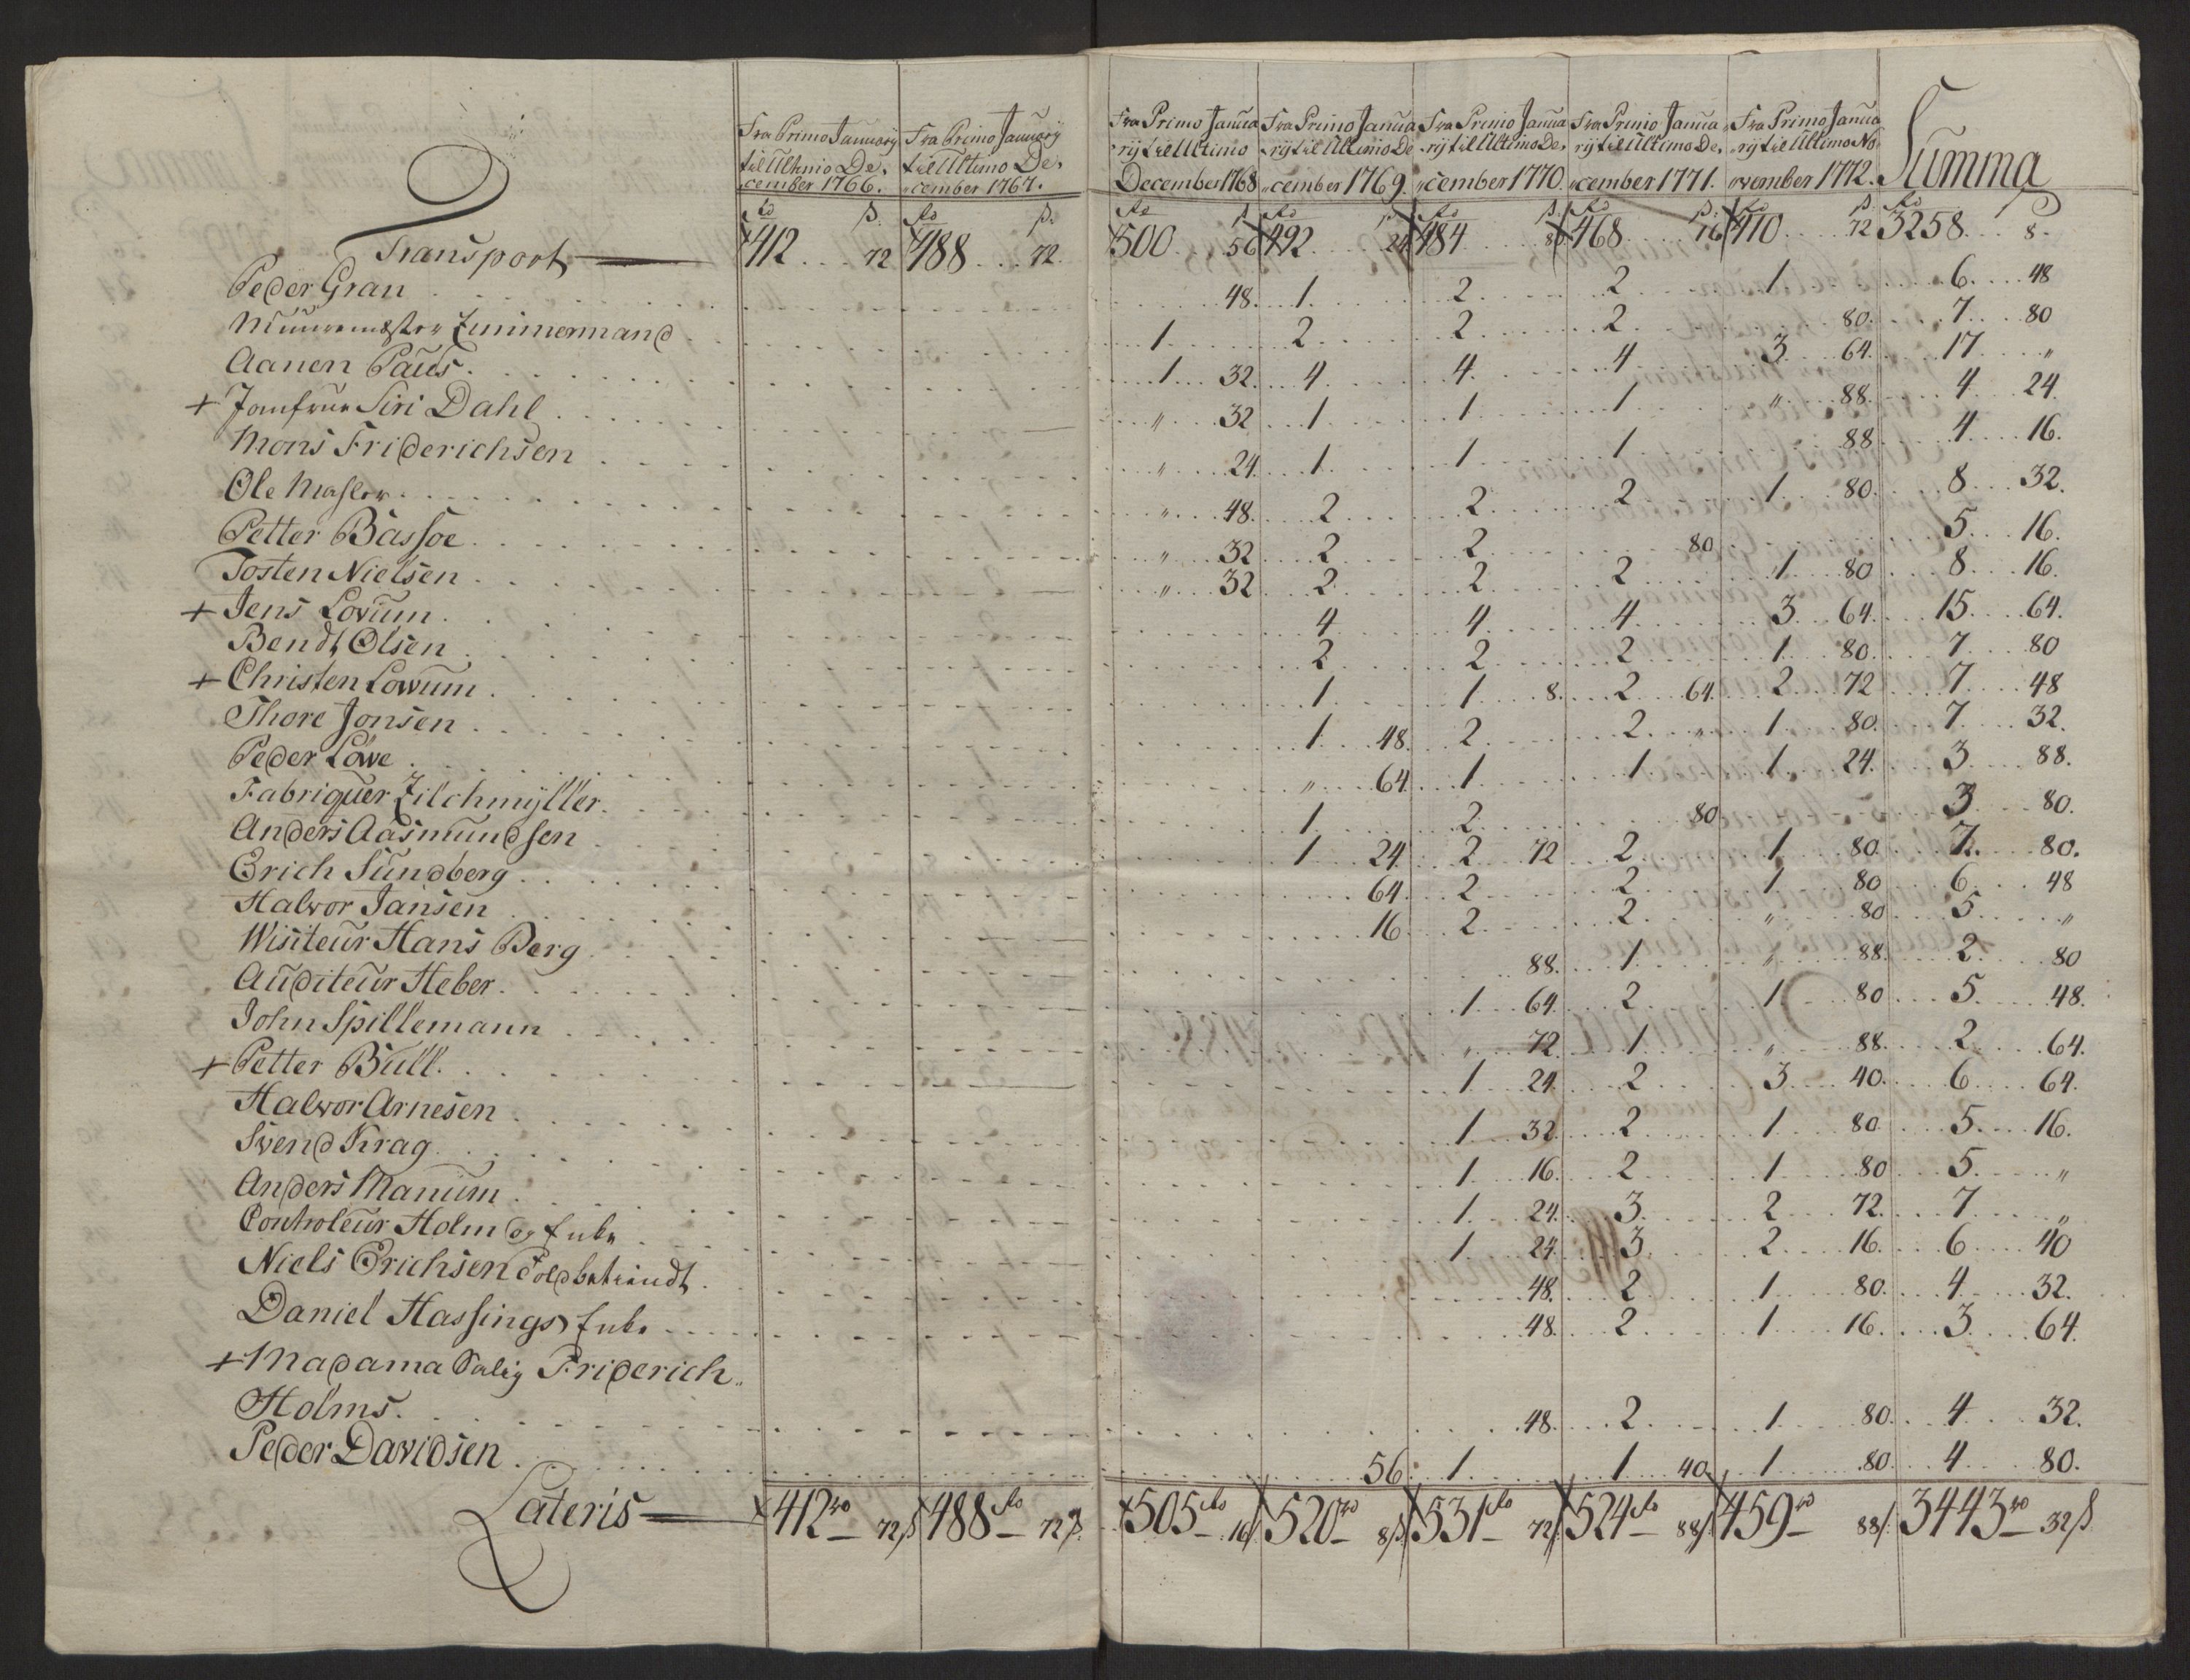 Fra Primo January til Ultimo December 1766. | Fra Primo January til Ultimo December 1767. | Fra Primo Januarij til Ultimo December 1768 | Fra Primo Januarij til Ultimo December 1769. | Fra Primo Januarij til Ultimo December 1770. | Fra Primo Januarij til Ultimo December 1771. | Fra Primo Januarij til Ultimo November 1772. | Summa
Transport 412 .. 72 | 488 .. 72 | 500 .. 56 | 492 .. 24 | 484 .. 80 | 468 .. 16 | 410 .. 72 | 3258 .. 8
Peder Gran | 48. | 1 | 2 | 2 | 1 | 6 .. 48
Muurmester Zimmermand | 1 | 2 | 2 | 2 | 80. | 7 .. 80
Aanen Paus | 1 .. 32. | 4 | 4 | 4 | 3 .. 64. | 17 .. „
+ Jomfrue Siri Dahl | „ 32 | 1 | 1 | 1 | „ 88. | 4 .. 24.
Mons Friderichsen | „ 24. | 1 | 1 | 1 | 88 | 4 .. 16.
Ole Masler | „ 48. | 2 | 2 | 2 | 1 .. 80. | 8 .. 32.
Petter Bassoe | „ 32 | 2 | 2 | 80 | 5 .. 16.
Tosten Nielsen | „ 32 | 2 | 2 | 2 | 1 .. 80 | 8 .. 16.
+ Jens Lovum | 4 | 4 | 4 | 3 .. 64. | 15 .. 64.
Bendt Olsen | 2 | 2 | 2 | 1 .. 80. | 7 .. 80
+ Christen Lowum | 1 | 1 .. 8. | 2 .. 64. | 2 .. 72 | 7 .. 48
Thore Jonsen | 1 .. 48. | 2 | 2 | 1 .. 80. | 7 .. 32.
Peder Löwe | „ 64 | 1 | 1 | 1 .. 24. | 3 .. 88.
Fabriquer Zilchmÿller | 1 | 2 | 80 | 3 .. 80.
Anders Aasmundsen | 1 .. 24. | 2 .. 72 | 2 | 1 .. 80. | 7 .. 80.
Erich Sundberg | 64. | 2 | 2 | 1 .. 80 | 6 .. 48
Halvor Jansen | 16 | 2 | 2 | „ 80 | 5 .. „
Wisiteur Hans Berg | 88. | 1 | „ 88. | 2 .. 80
Auditeur Heber | 1 .. 64. | 2 | 1 .. 80 | 5 .. 48.
John Spillemann | „ 72. | 1 | „ 88. | 2 .. 64.
+ Petter Bull | 1 .. 24. | 2 | 3 .. 40. | 6 .. 64.
Halvor Arnesen | 1 .. 32. | 2 | 1 .. 80. | 5 .. 16.
Svend Krag | 1 .. 16. | 2 | 1 .. 80 | 5 .. „
Anders Manum | 1 .. 24. | 3 | 2 .. 72. | 7 .. „
Controleur Holm og Enke | 1 .. 24. | 3 | 2 .. 16. | 6 .. 40
Niels Erichsen Toldbetiendt | 48. | 2 | 1 .. 80. | 4 .. 32.
Daniel Hassings Enke | 48. | 2 | 1 .. 16. | 3 .. 64.
+ Madama Salig Friderich
Holms | 48. | 2 | 1 .. 80. | 4 .. 32.
Peder Davidsen | 56. | 1 | 1 .. 40. | 1 .. 80. | 4 .. 80.
Lateris 412 72 | 488 72 | 505 16 | 520 8 | 531 72 | 524 88 | 459 88 | 3443 32